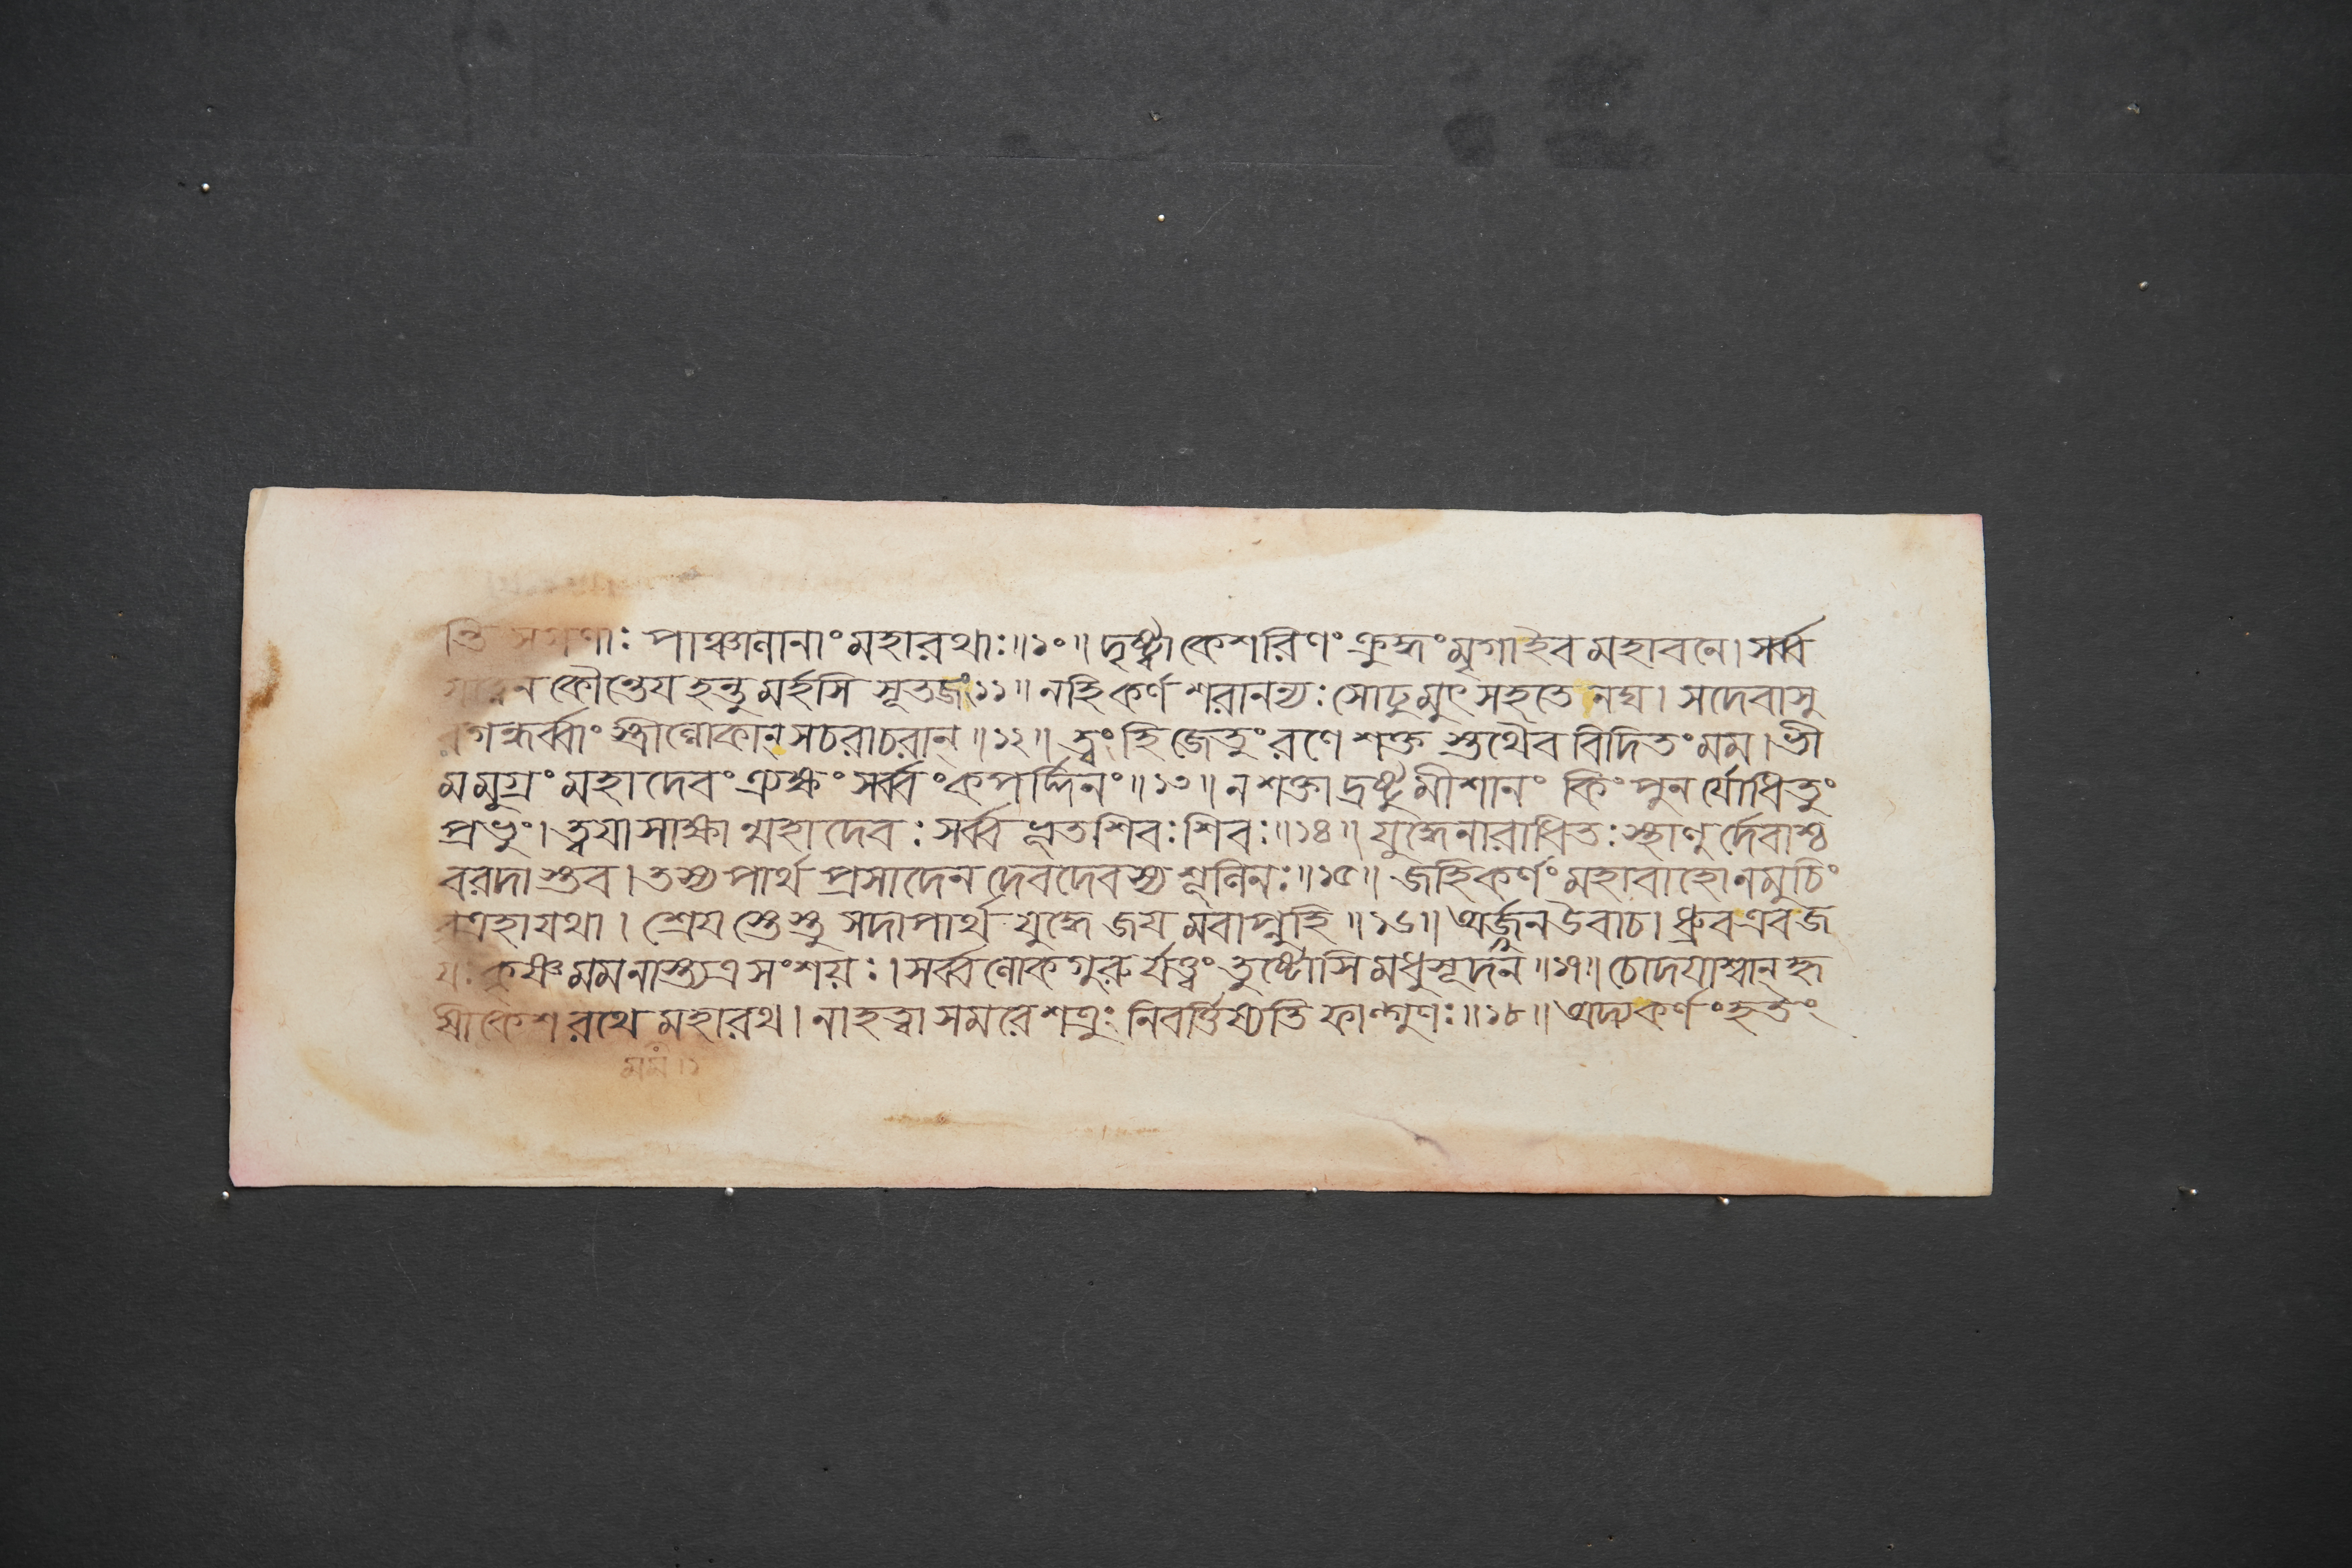 ন্তি সগণাঃ পাঞ্চালানাং মহারথাঃ॥১০॥ দৃষ্ট্বা কেশরিণং ক্রুদ্ধং মৃগাইব মহাবনে। সর্ব্ব
যত্নেন কৌন্তেয হন্তুমর্হসি সূতজং১১॥ নহি কর্ণ শরানন্যঃ সোঢুমুৎসহতে নঘ। সদেবাসু
রগন্ধর্ব্বাং স্ত্রীল্লোকান্ সচরাচরান্॥১২॥ ত্বং হি জেতুং রণে শক্ত স্তথৈব বিদিতং মম। ভী
মমুগ্রং মহাদেবং ত্র্যক্ষং সর্ব্বং কপর্দ্দিনং॥১৩॥ ন শক্তা দ্রষ্টুমীশানং কিং পুনর্যোধিতুং
প্রভুং। ত্বযা সাক্ষান্মহাদেবঃ সর্ব্বভূতশিবঃ শিবঃ॥১৪॥ যুদ্ধেনারাধিতঃ স্থাণুর্দেবাশ্চ
বরদাস্তব। তস্য পার্থ প্রসাদেন দেবদেবস্য শূলিনঃ॥১৫॥ জহি কর্ণং মহাবাহো নমুচিং
বৃত্রহা যথা। শ্রেযস্তেস্তু সদা পার্থ যুদ্ধে জযমবাপ্নুহি॥১৬॥ অর্জ্জুন উবাচ। ধ্রুব এব জ
যঃ কৃষ্ণ মম নাস্ত্যত্র সংশয়ঃ। সর্ব্বলোকগুরুর্যত্ত্বং তুষ্টোসি মধুসূদন॥১৭॥ চোদযাশ্বান্ হৃ
ষীকেশ রথে মহারথ। নাহত্বা সমরে শত্রুং নিবর্ত্তিষ্যতি ফাল্গুণঃ॥১৮॥ অদ্য কর্ণং হতং